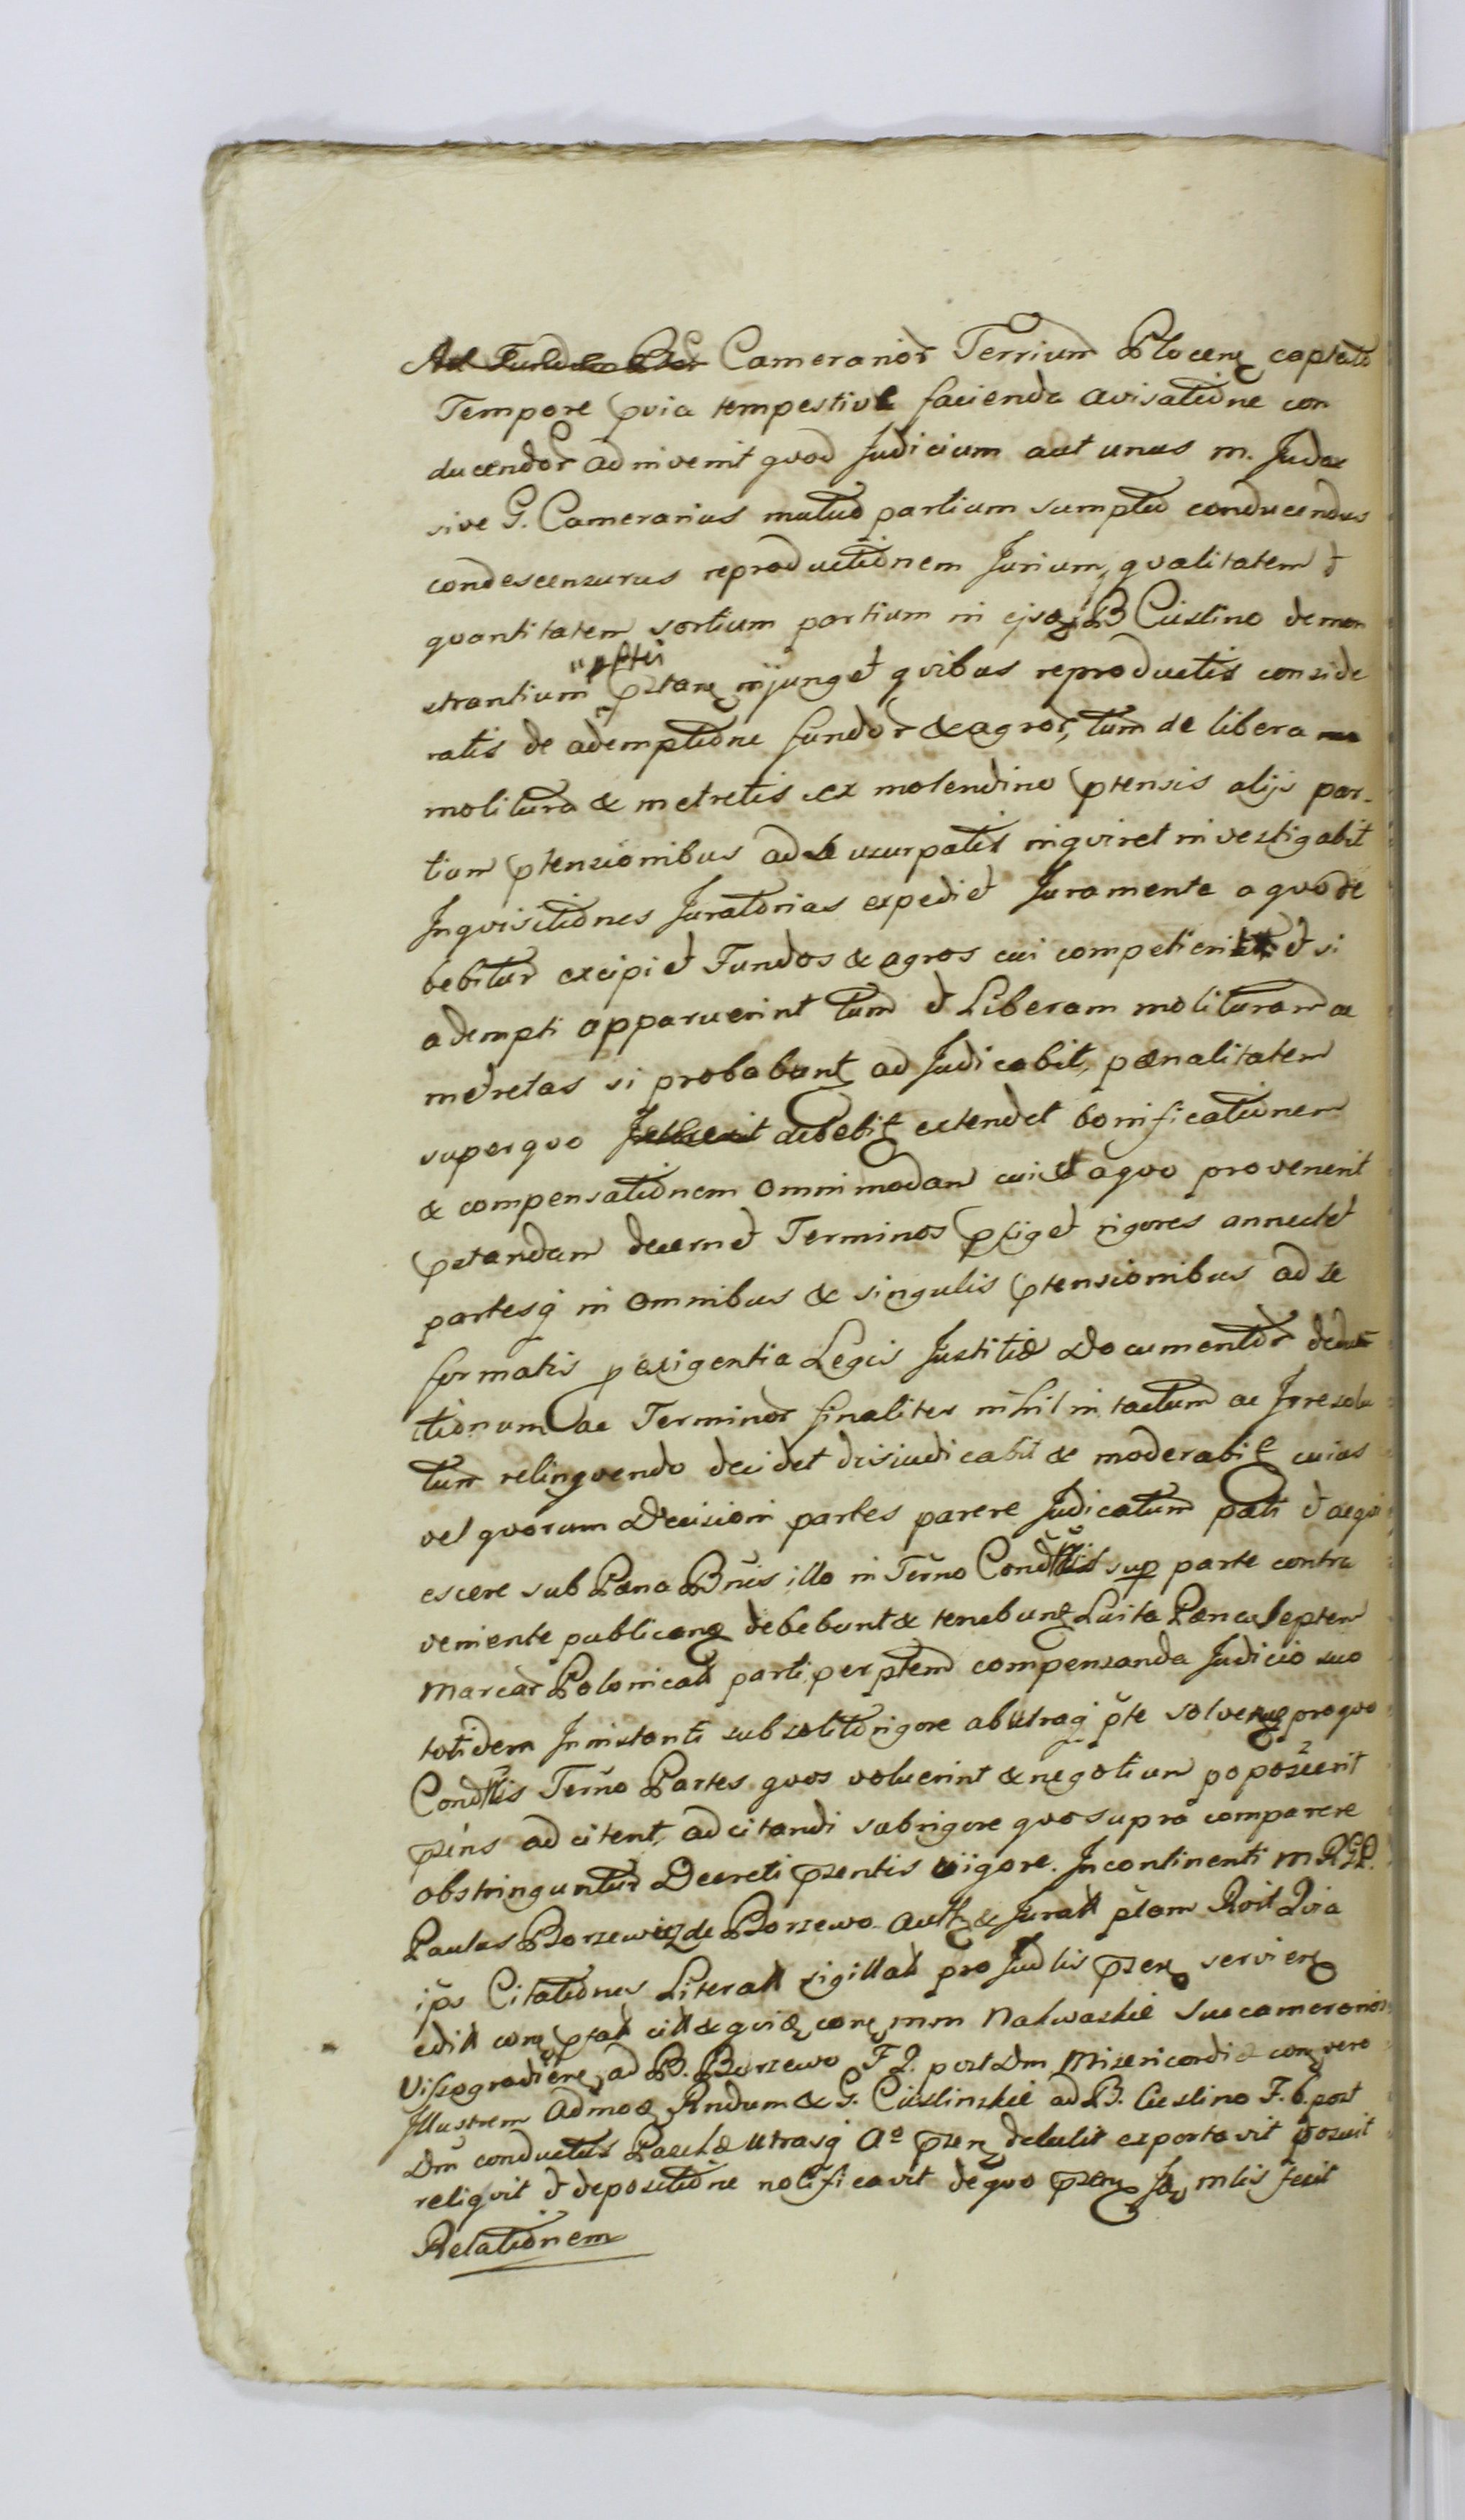 Camerarior Terrium Plocen captato
Tempore pvia tempestive facienda avisatione con
ducendor ad invenit qvod Judicium aut unus m. Judex
sive G. Camerarius mutuo partium sumptu conducendus
condescensurus reproductionem Jurium, qvalitatem et
qvantitatem sortium partium in ejsq B Cieslino demon
strantium injunget qvibus reproductis conside
ratis de ademptione fundor & agror, tum de libera
molitura & metretis ex molendino ptensis alijs par-
tium ptensionibus ad se usurpatis inqviret investigabit
Inqvisitiones Juratorias expediet Juramenta a qvo de
bebitur excipiet Fundos & agros cui competierint et si
adempti apparuerint tum et Liberam molituram ac
metretas si probabunt ad Judicabit, pœnalitatem
super qvo debebit extendet bonificationem
& compensationem omnimodam cui et a qvo provenerit
pstandam decernet Terminos pfiget rigores annectet
partesq in omnibus & singulis ptensionibus ad se
formatis p exigentia Legis Justitiæ Documentor deduc
tionum ac Terminor finaliter nihil intactum ac Irresolu
tum relinqvendo decidet disiudicabit & moderabit cuius
vel qvorum Decisioni partes parere Judicatum pati et acqvi
escere sub Pæna Bnis illo in Terno Condtlis sup parte contra
veniente publicang debebunt & tenebunt Luita Pæna Septem
Marcar Polonicall parti per ptem compensanda Judicio suo
totidem In instanti sub solito rigore ab utraq pte solven pro qvo
Condtlis Terno Partes qvos voluerint & negotium poposcerit
pzens ad citent, ad citandi sub rigore qvo supra comparere
obstringuntur Decreti pzentis vigore. Incontinenti m RGP.
Paulus Borzewicz de Borzewo Auth & Jurall plam Roit Qvia
ips Citationes Literall sigillall pro Judlis pzen servien
edill con ptall cill & qvid con mm Nakwaskie Succamerarios
Vissogradien, ad B. Borzewo F. Q. post Dm Misericordiæ con vero
Illustrem Admod Rndum & G. Cieslinskie ad B. Cieslino F. 6. post
Dm conductus Paschæ utrasq Ao pzen detulit exportavit posuit
reliqvit et depositione notificavit de qvo pzen mlis fecit
Relationem